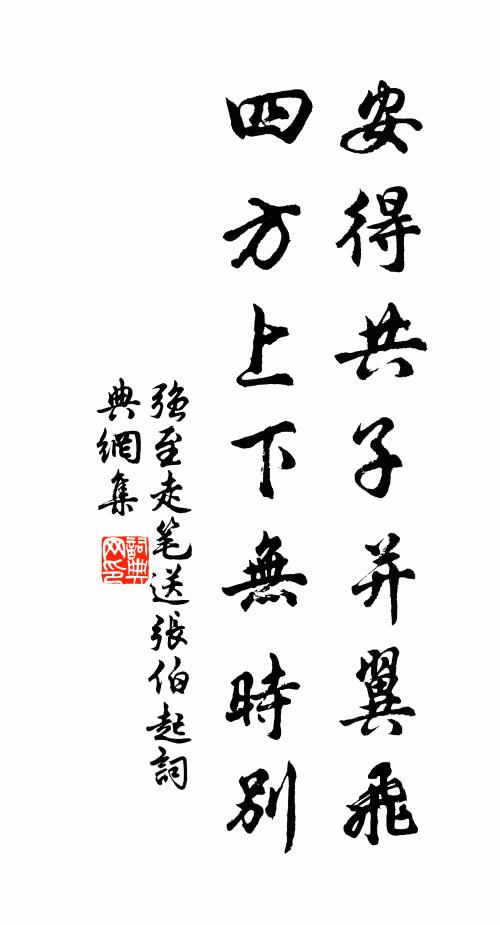 安得共子并翼飛
四方上下無時別
強至走笔送張伯起詞
典網集
詞典
网印